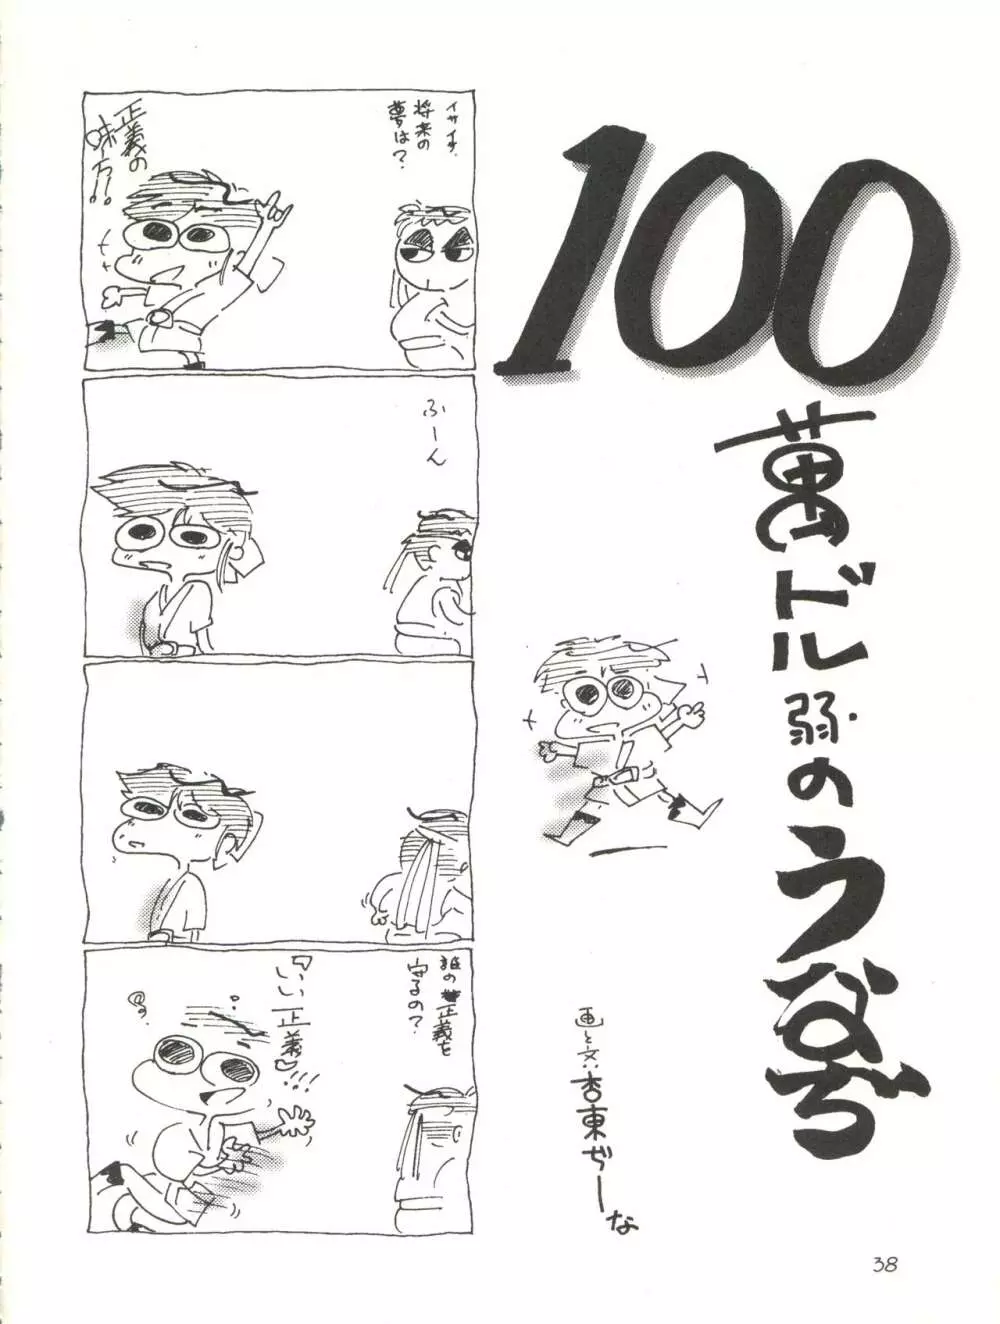 100
萬ドル弱のうなぢ
画と文・杏東ぢーな
イサイサ、
将来の
夢は?
正義の
味方!!
ふーん
誰の正義を
守るの?
『いい正義』!!!
38